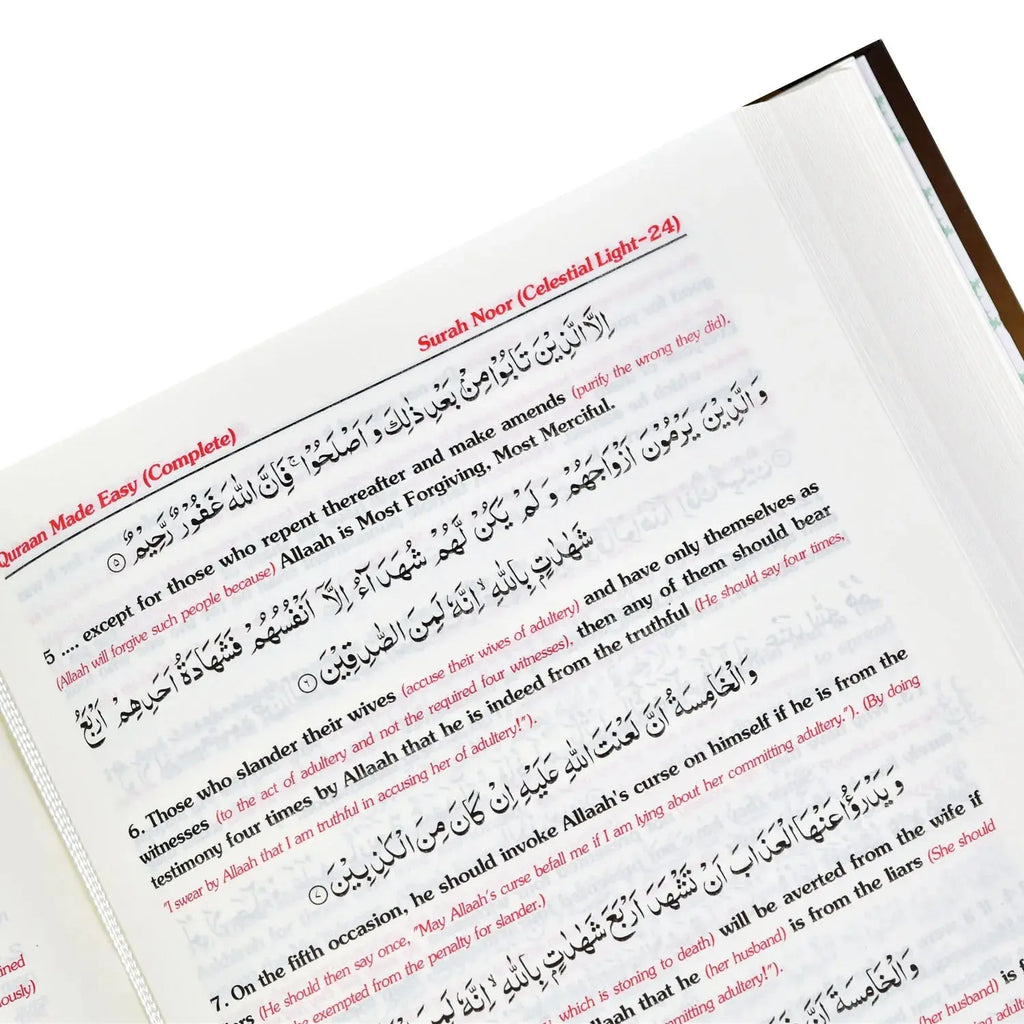 Quraan Made Easy (Complete)
Surah Noor (Celestial Light-24)
اِلَّا الَّذِيْنَ تَابُوْا مِنْۢ بَعْدِ ذٰلِكَ وَ اَصْلَحُوْا ۚ فَاِنَّ اللّٰهَ غَفُوْرٌ رَّحِيْمٌ ۝٥
5 .... except for those who repent thereafter and make amends (purify the wrong they did).
(Allaah will forgive such people because) Allaah is Most Forgiving, Most Merciful.
وَ الَّذِيْنَ يَرْمُوْنَ اَزْوَاجَهُمْ وَ لَمْ يَكُنْ لَّهُمْ شُهَدَآءُ اِلَّاۤ اَنْفُسُهُمْ فَشَهَادَةُ اَحَدِهِمْ اَرْبَعُ
شَهٰدٰتٍۭ بِاللّٰهِ ۙ اِنَّهٗ لَمِنَ الصّٰدِقِيْنَ ۝٦
6. Those who slander their wives (accuse their wives of adultery) and have only themselves as
witnesses (to the act of adultery and not the required four witnesses), then any of them should bear
testimony four times by Allaah that he is indeed from the truthful (He should say four times,
"I swear by Allaah that I am truthful in accusing her of adultery!").
وَ الْخَامِسَةُ اَنَّ لَعْنَتَ اللّٰهِ عَلَيْهِ اِنْ كَانَ مِنَ الْكٰذِبِيْنَ ۝٧
7. On the fifth occasion, he should invoke Allaah's curse on himself if he is from the
(He should then say once, "May Allaah's curse befall me if I am lying about her committing adultery."). (By doing
be exempted from the penalty for slander.)
وَ يَدْرَؤُا عَنْهَا الْعَذَابَ اَنْ تَشْهَدَ اَرْبَعَ شَهٰدٰتٍۭ بِاللّٰهِ ۙ اِنَّهٗ لَمِنَ
which is stoning to death) will be averted from the wife if
that he (her husband) is from the liars (She should
committing adultery!").
وَ الْخَامِسَةَ اَنَّ
(her husband) is